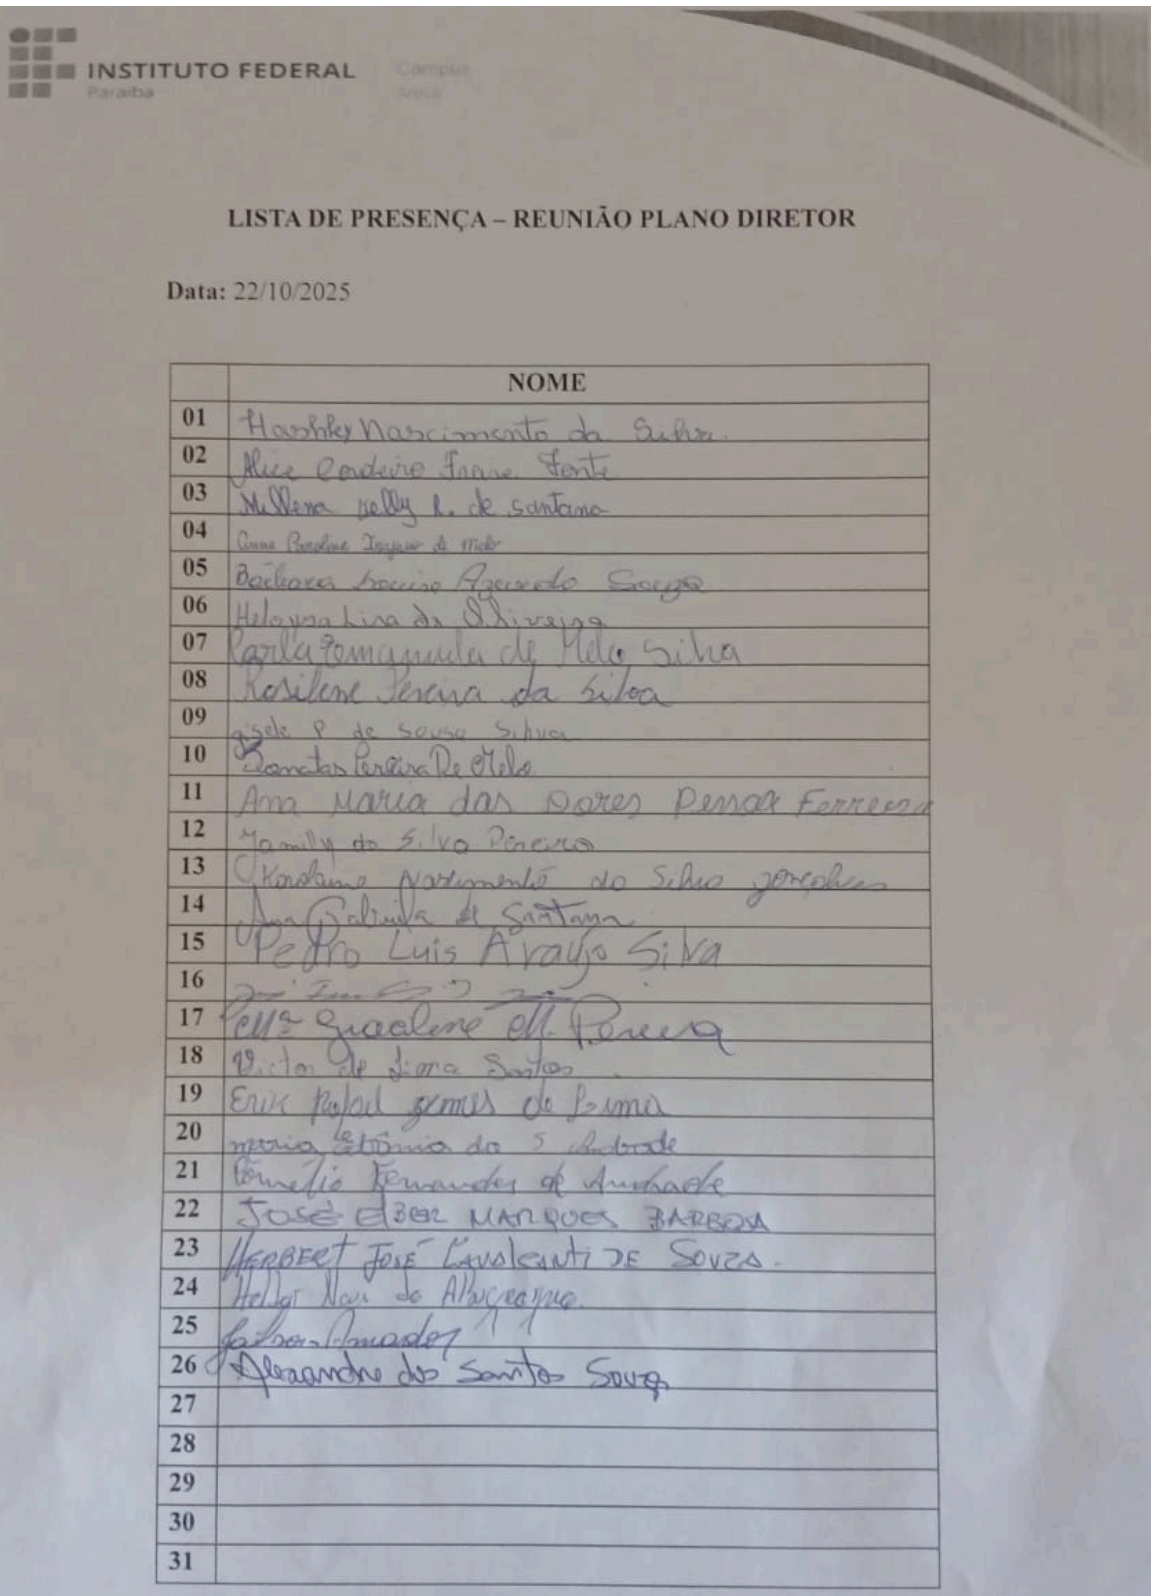 INSTITUTO FEDERAL
Paraíba
Campus
Areia
LISTA DE PRESENÇA – REUNIÃO PLANO DIRETOR
Data: 22/10/2025
NOME
01 Nascimento da Silva.
02 Alice Cordeiro Freire Fonte
03 Millena Kelly R. de Santana
04 Anne Caroline de Melo
05 Bárbara Louise Azevedo Souza
06 Heloysa Lira de Oliveira
07 Carla Emanuela de Melo Silva
08 Rosilene Pereira da Silva
09 gisele P de Sousa Silva
10 Jonatas Pereira De Melo
11 Ana Maria das Dores Pessoa Ferreira
12 Jamilly da Silva Pereira
13 Nascimento da Silva gonçalves
14 Ana Gabriela de Santana
15 Pedro Luis Araujo Silva
16
17 Mª Gracilene M. Pereira
18 Victor de Lima Santos
19 Erik Rafael gomes de Lima
20 maria da S Andrade
21 Cornélio Fernandes de Andrade
22 JOSÉ MARQUES BARBOSA
23 HERBERT JOSÉ CAVALCANTI DE SOUZA.
24 de Albuquerque.
25 Amador
26 Alexandre dos Santos Souza
27
28
29
30
31